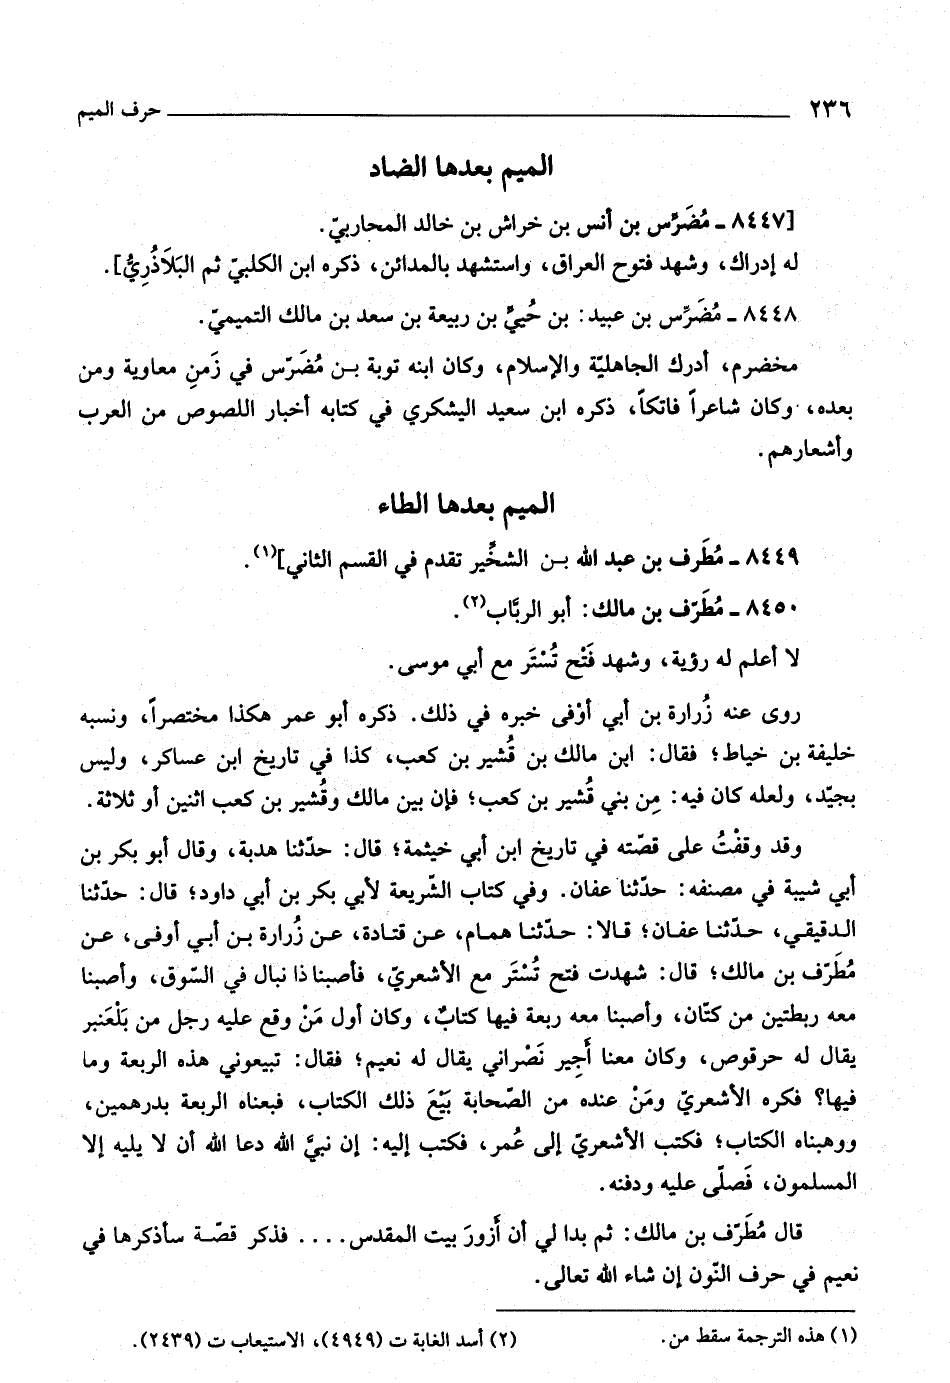 ٢٣٦ حرف الميم
الميم بعدها الضاد
[٨٤٤٧ ـ مُضَرِّس بن أنس بن خراش بن خالد المحاربيّ.
له إدراك، وشهد فتوح العراق، واستشهد بالمدائن، ذكره ابن الكلبيّ ثم البَلَاذُرِيُّ].
٨٤٤٨ ـ مُضَرِّس بن عبيد: بن حُييٍّ بن ربيعة بن سعد بن مالك التميميّ.
مخضرم، أدرك الجاهليّة والإسلام، وكان ابنه توبة بـن مُضَرّس في زَمنِ معاوية ومن
بعده، وكان شاعراً فاتكاً، ذكره ابن سعيد اليشكري في كتابه أخبار اللصوص من العرب
وأشعارهم.
الميم بعدها الطاء
٨٤٤٩ ـ مُطَرف بن عبد الله بـن الشخِّير تقدم في القسم الثاني](١).
٨٤٥٠ ـ مُطَرّف بن مالك: أبو الربَّاب(٢).
لا أعلم له رؤية، وشهد فَتْح تُسْتَر مع أبي موسى.
روى عنه زُرارة بن أبي أوْفى خبره في ذلك. ذكره أبو عمر هكذا مختصراً، ونسبه
خليفة بن خياط؛ فقال: ابن مالك بن قُشير بن كعب، كذا في تاريخ ابن عساكر، وليس
بجيّد، ولعله كان فيه: مِن بني قُشير بن كعب؛ فإن بين مالك وقُشير بن كعب اثنين أو ثلاثة.
وقد وقفْتُ على قصّته في تاريخ ابن أبي خيثمة؛ قال: حدّثنا هدبة، وقال أبو بكر بن
أبي شيبة في مصنفه: حدّثنا عفان. وفي كتاب الشّريعة لأبي بكر بن أبي داود؛ قال: حدّثنا
الدقيقي، حدّثنا عفـان؛ قـالا: حـدّثنـا همـام، عـن قتـادة، عـن زُرارة بـن أبـي أوفـى، عـن
مُطَرّف بن مالك؛ قال: شهدت فتح تُسْتَر مع الأشعريّ، فأصبنا ذا نبال في السّوق، وأصبنا
معه ربطتين من كتّان، وأصبنا معه ربعة فيها كتابٌ، وكان أول مَنْ وقع عليه رجل من بَلْعَنبر
يقال له حرقوص، وكان معنا أَجِير نَصْراني يقال له نعيم؛ فقال: تبيعوني هذه الربعة وما
فيها؟ فكره الأشعريّ ومَنْ عنده من الصّحابة بَيْعَ ذلك الكتاب، فبعناه الربعة بدرهمين،
ووهبناه الكتاب؛ فكتب الأشعريّ إلى عُمر، فكتب إليه: إن نبيَّ الله دعا الله أن لا يليه إلا
المسلمون، فَصلّى عليه ودفنه.
قال مُطَرّف بن مالك: ثم بدا لي أن أَزورَ بيت المقدس.... فذكر قصّـة سأذكرها في
نعيم في حرف النّون إن شاء الله تعالى.
(١) هذه الترجمة سقط من. (٢) أسد الغابة ت (٤٩٤٩)، الاستيعاب ت (٢٤٣٩).